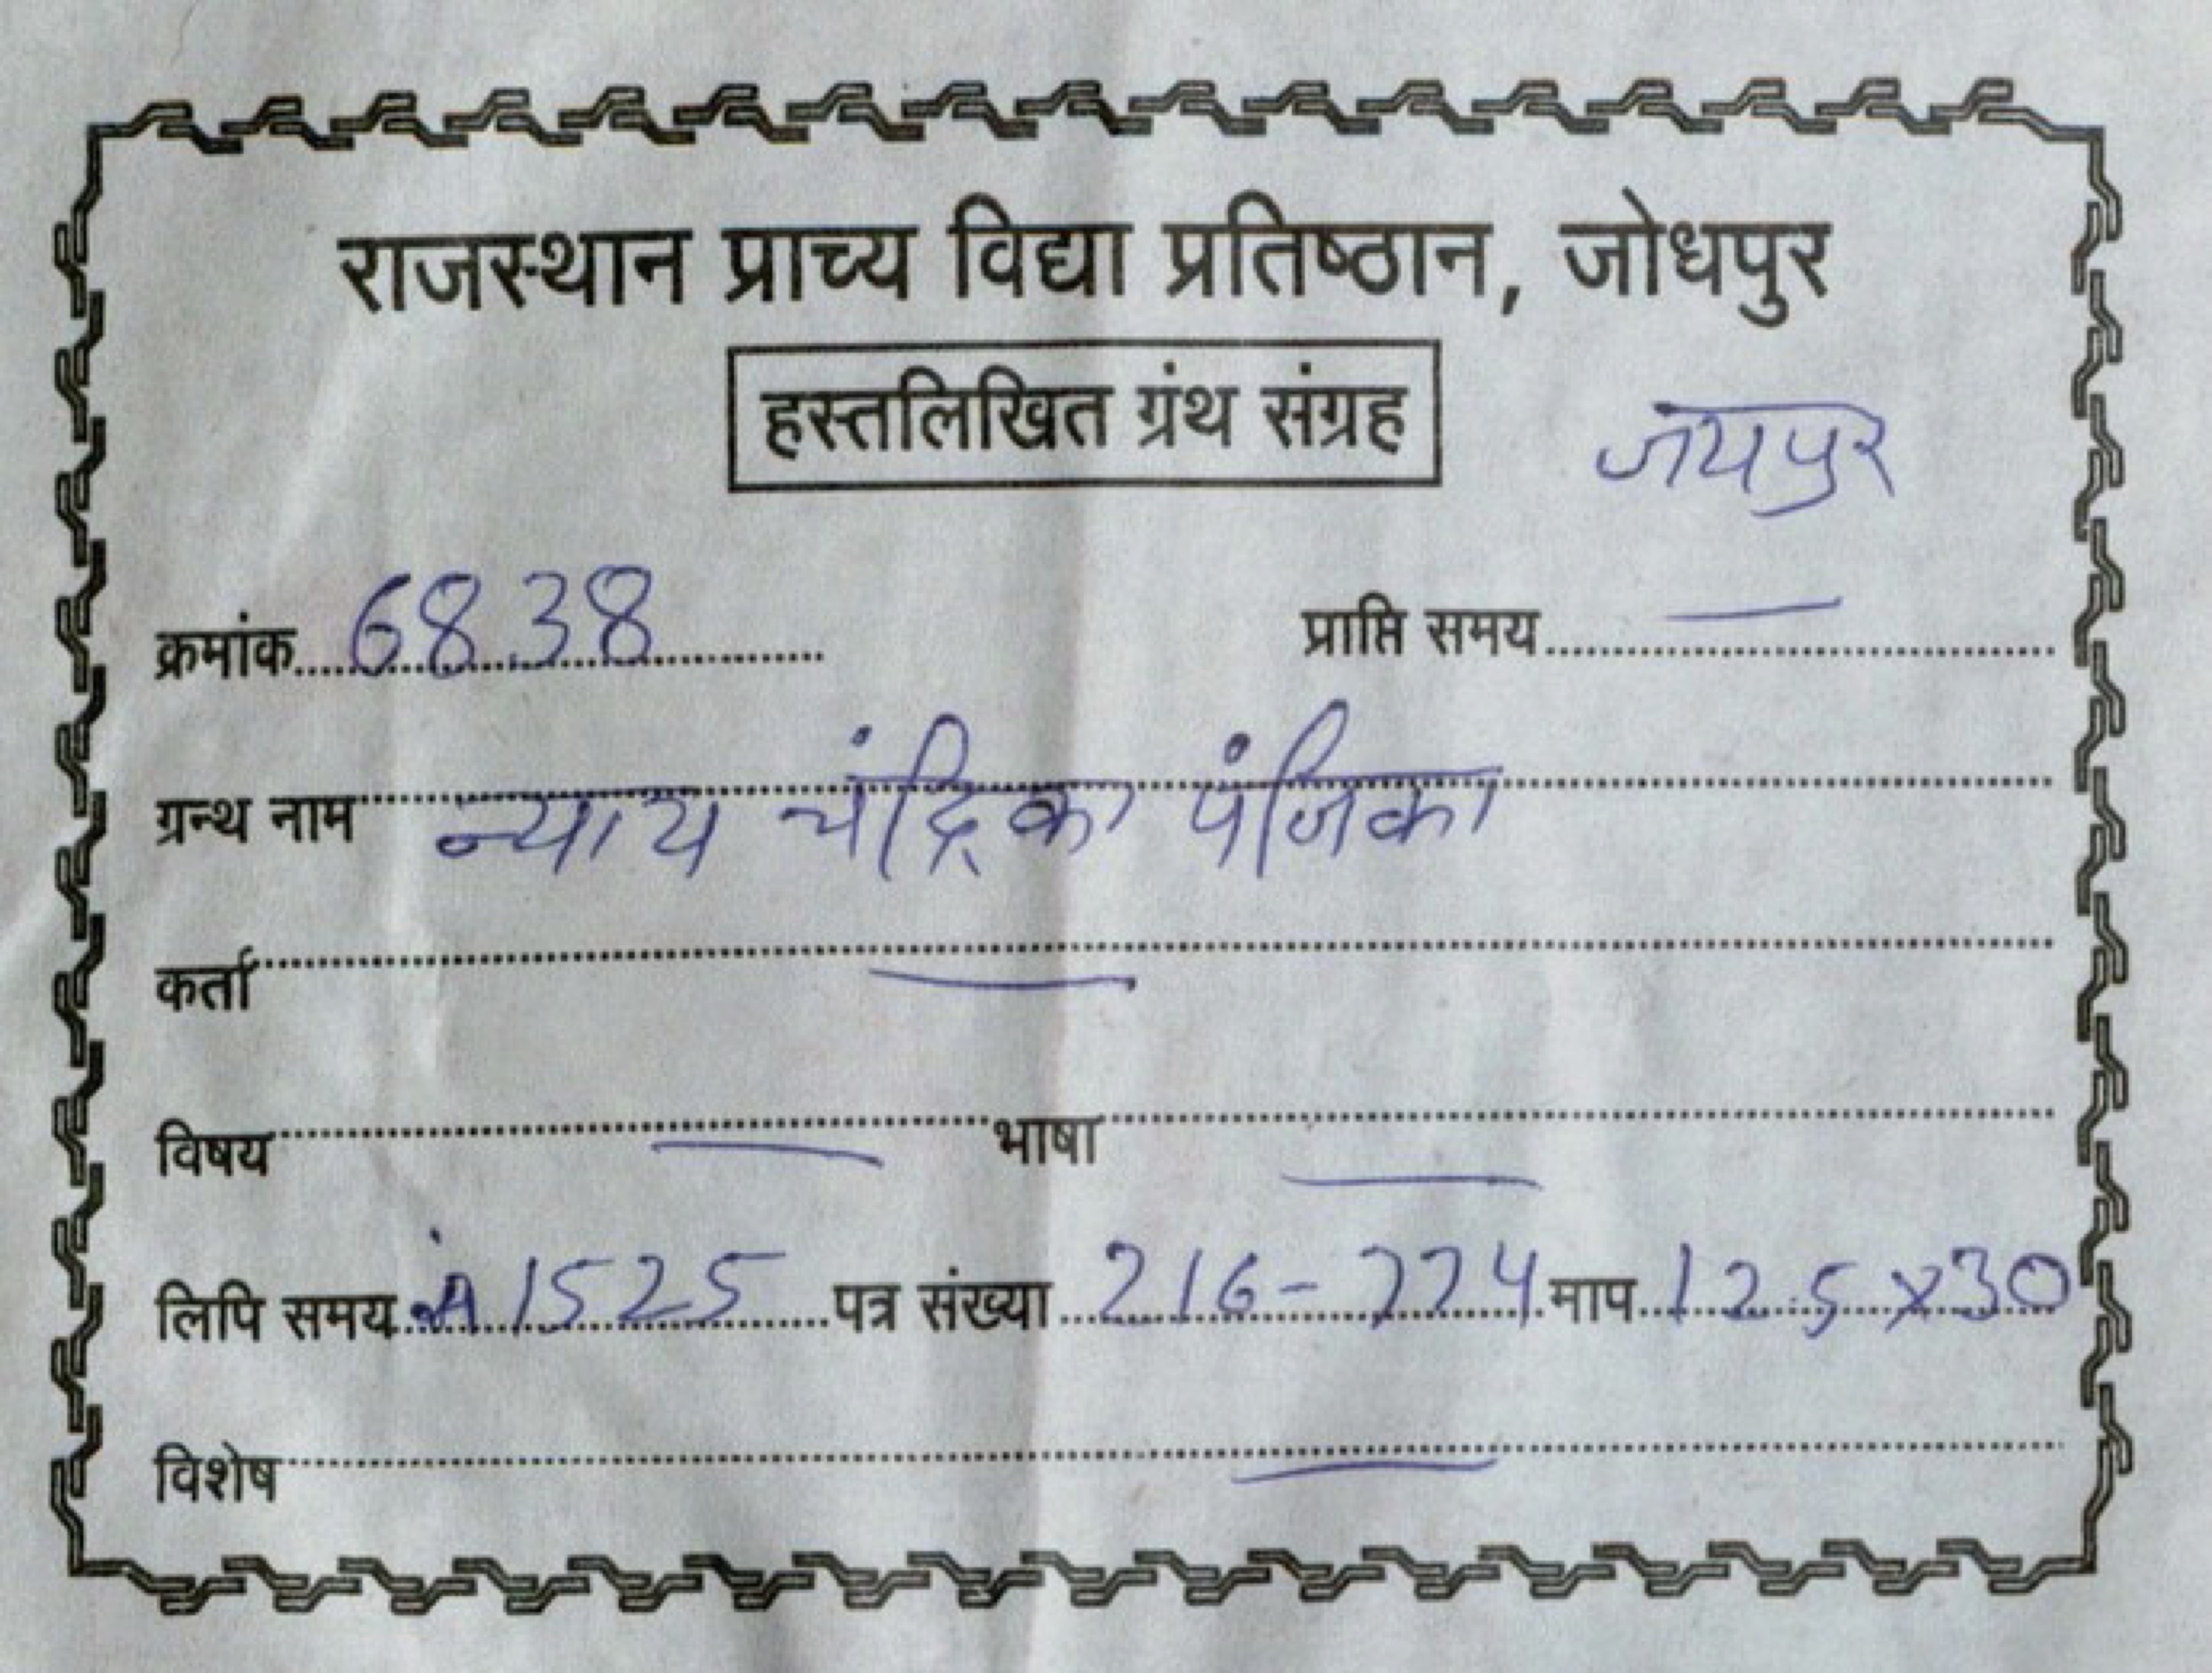 राजस्थान प्राच्य विद्या प्रतिष्ठान, जोधपुर
हस्तलिखित ग्रंथ संग्रह
जयपुर
क्रमांक 6838 प्राप्ति समय —
ग्रन्थ नाम न्याय चंद्रिका पंजिका
कर्ता —
विषय — भाषा —
लिपि समय सं 1525 पत्र संख्या 216-224 माप 12.5 x 30
विशेष —